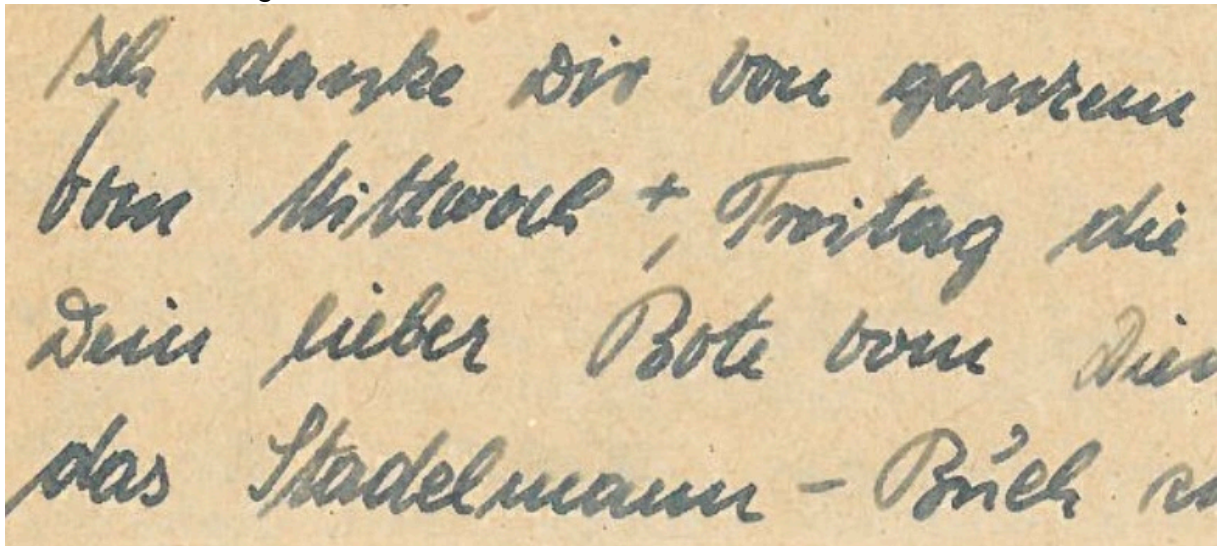 Ich danke Dir von ganzem
vom Mittwoch + Freitag die
Dein lieber Bote vom
das Stadelmann - Buch